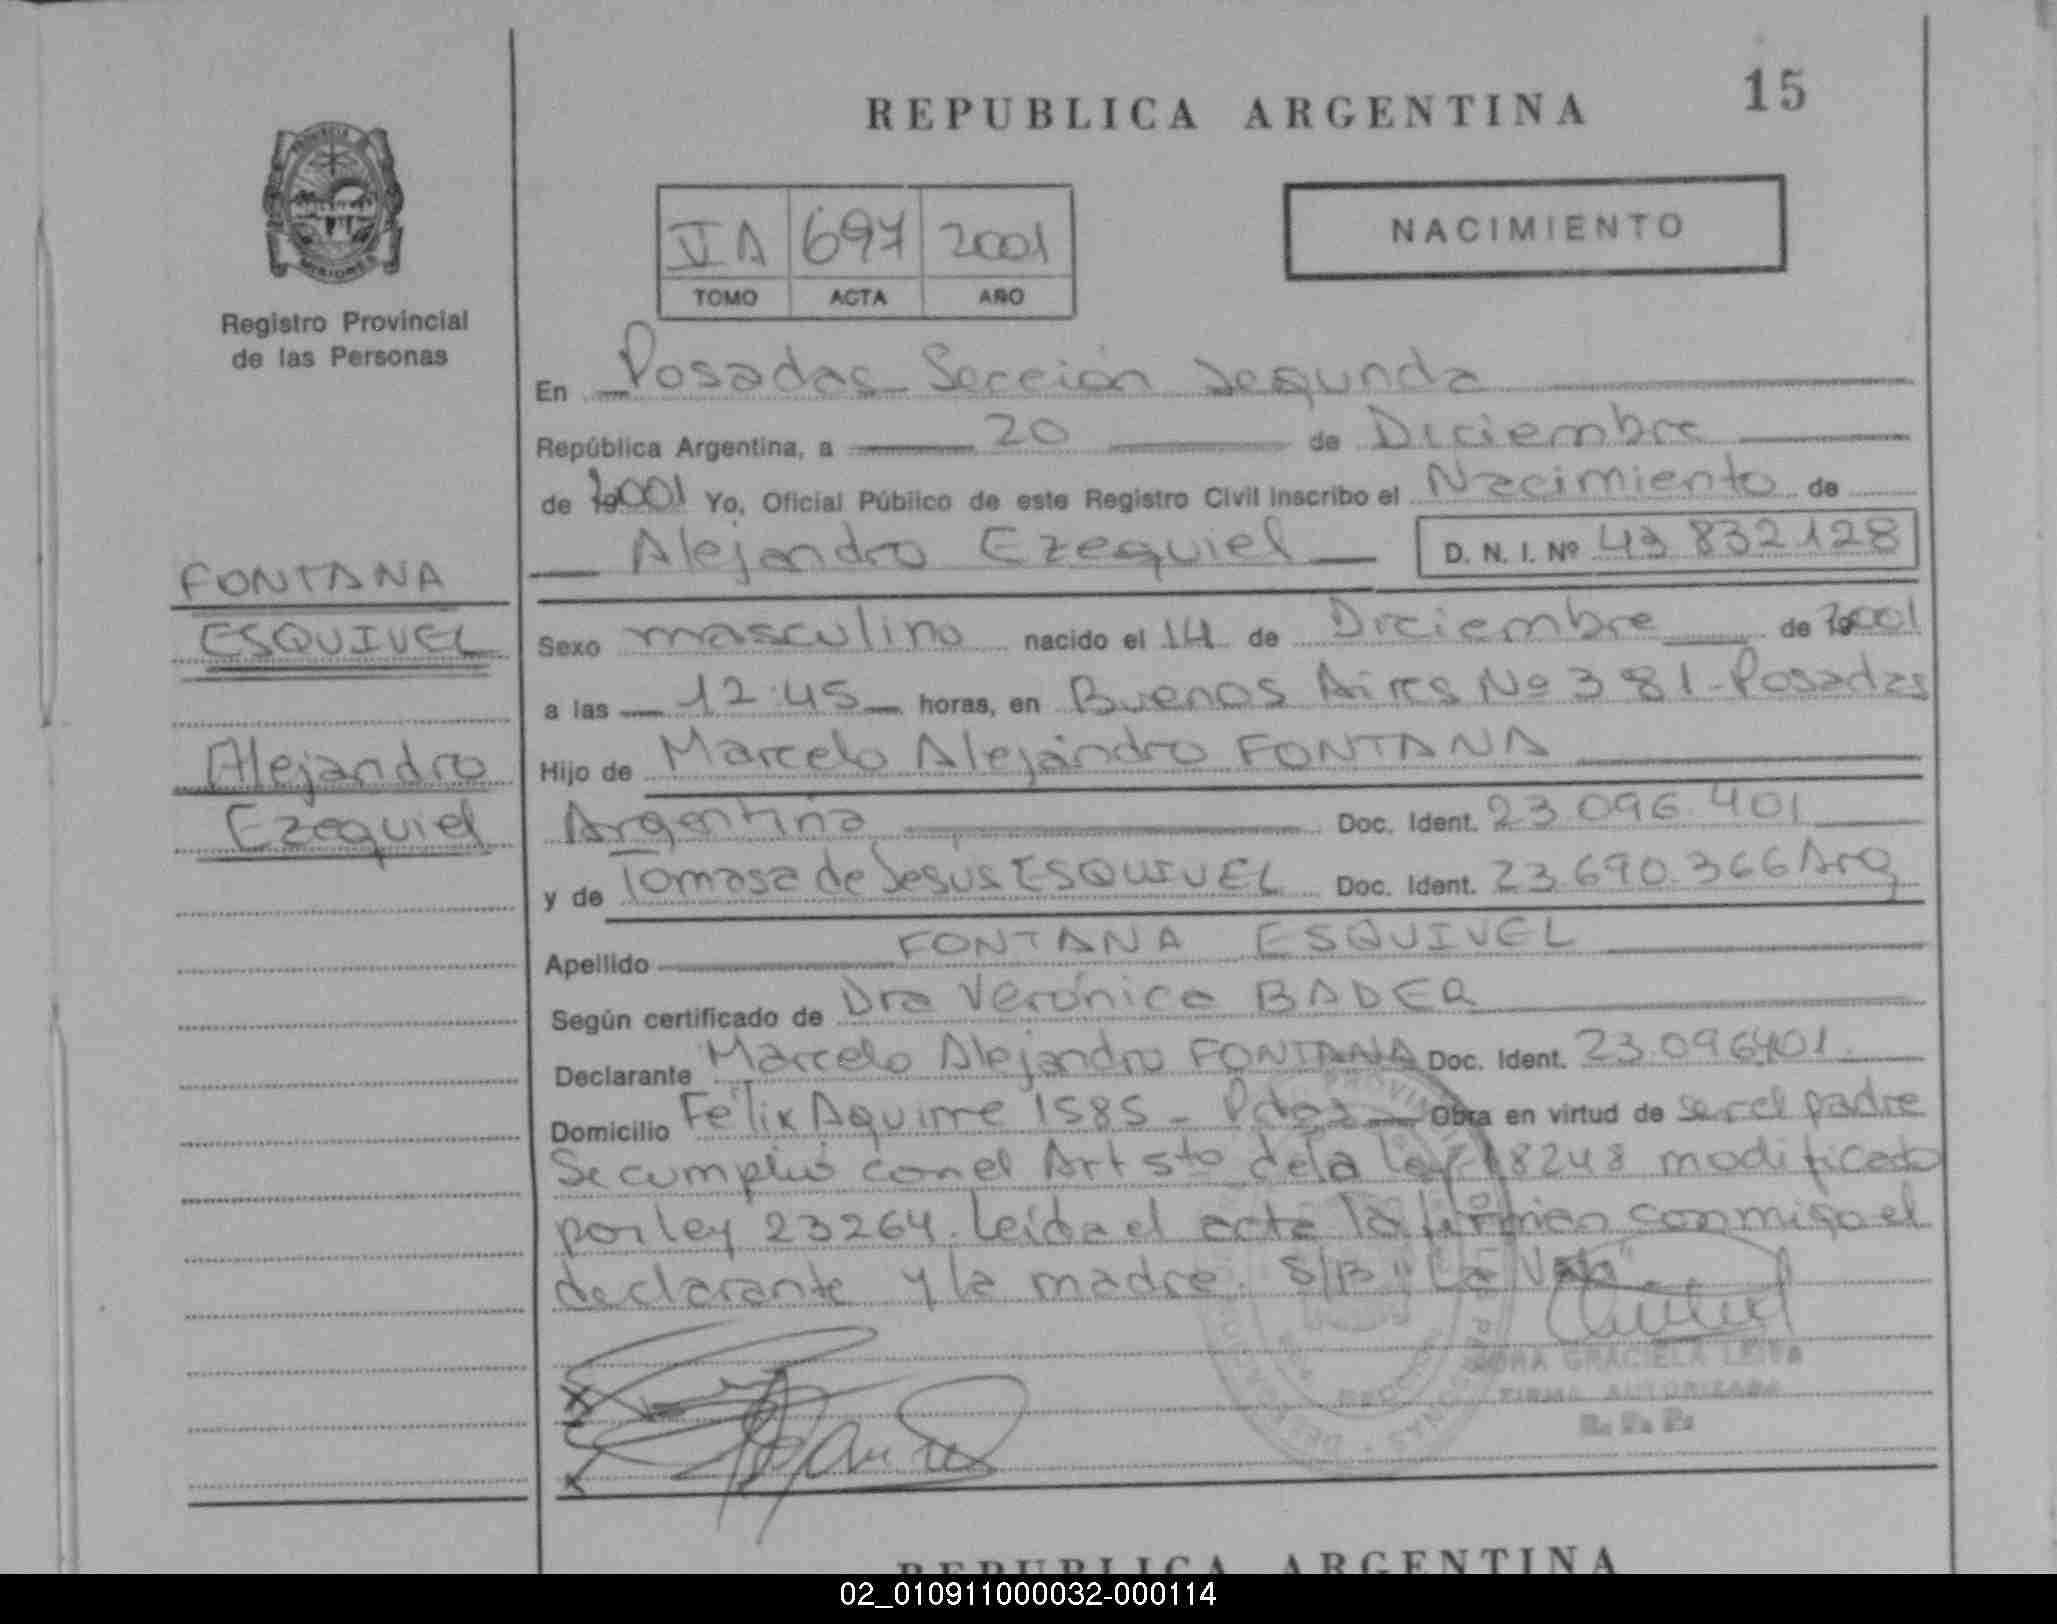 REPUBLICA ARGENTINA
15
NACIMIENTO
697 2001
TOMO ACTA AÑO
PROVINCIA
MISIONES
Registro Provincial
de las Personas
En Posadas Sección Segunda
República Argentina, a 20 de Diciembre
de 2001 Yo, Oficial Público de este Registro Civil inscribo el Nacimiento de
Alejandro Ezequiel D. N. I. Nº 43 832128
FONTANA
ESQUIVEL
Alejandro
Ezequiel
Sexo masculino nacido el 14 de Diciembre de 2001
a las 12:45 horas, en Buenos Aires Nº 381-Posadas
Hijo de Marcelo Alejandro FONTANA
Argentina Doc. Ident. 23.096.401
y de Tomasa de Jesús ESQUIVEL Doc. Ident. 23.690.366 Arg
Apellido FONTANA ESQUIVEL
Según certificado de Dra Verónica BADER
Declarante Marcelo Alejandro FONTANA Doc. Ident. 23.096401.
Domicilio Félix Aguirre 1585 - Pdas Obra en virtud de ser el padre
Se cumplió con el Art 5to de la Ley 18248 modificado
por ley 23264. Leída el acta la firman conmigo el
declarante y la madre. S/B "La
GRACIELA LEIVA
FIRMA AUTORIZADA
REPUBLICA ARGENTINA
02_010911000032-000114